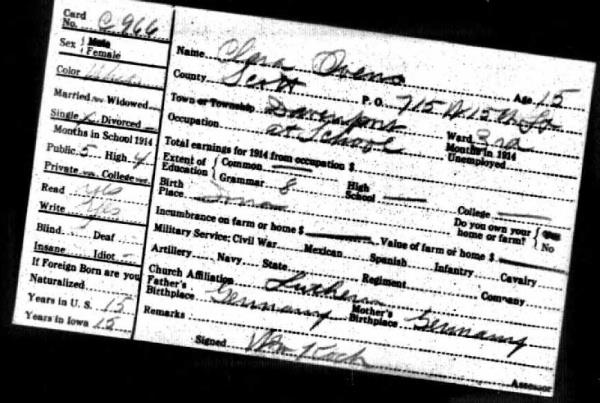 Card No. C 966
Sex { Male Female
Color White
Married Widowed
Single x Divorced
Months in School 1914
Public 5 High 4
Private College
Read yes
Write yes
Blind Deaf
Insane Idiot
If Foreign Born are you
Naturalized
Years in U. S. 15
Years in Iowa 15
Name Clara Owens Age 15
County Scott P. O. 715 W 15th St
Town or Township Davenport Ward 3rd
Occupation at School Months in 1914 Unemployed
Total earnings for 1914 from occupation $
Extent of Education { Common Grammar 8 High School College
Birth Place Iowa Do you own your home or farm? { Yes No
Incumbrance on farm or home $ Value of farm or home $
Military Service: Civil War Mexican Spanish Infantry Cavalry
Artillery Navy State Regiment Company
Church Affiliation Lutheran
Father's Birthplace Germany Mother's Birthplace Germany
Remarks
Signed Wm Koch Assessor